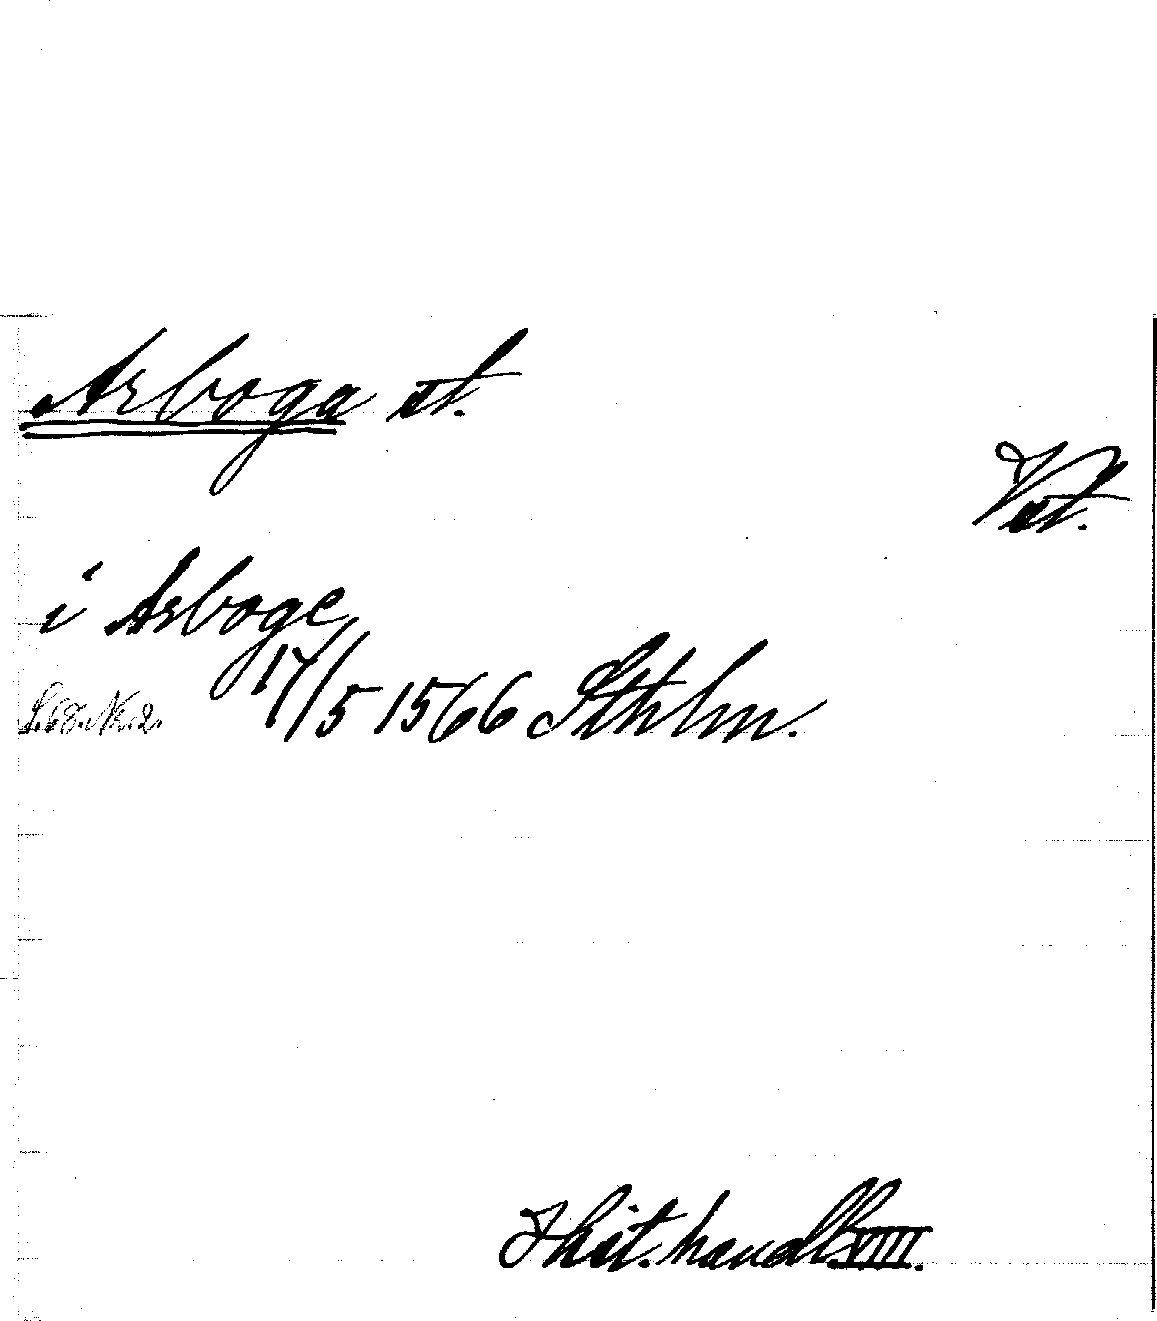 Arboga st.
Vst.
i Arboge
17/5 1566 Sthlm.
S. 68. Nr. 2.
Hist. handl. VIII.